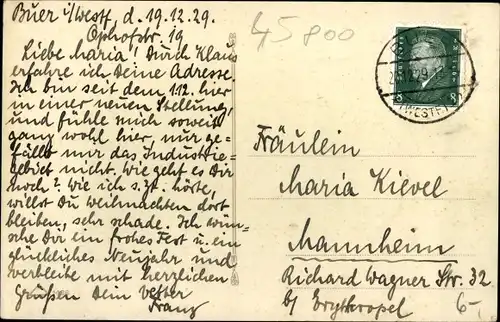 Buer i/Westf, d. 19.12.29.
Ophofstr. 19
Liebe Maria! Durch Klaus
erfahre ich Deine Adresse.
Ich bin seit dem 1.12. hier
in einer neuen Stellung,
und fühle mich soweit
ganz wohl hier, nur ge-
fällt mir das Industrie-
gebiet nicht. Wie geht es Dir
noch? Wie ich s. Zt. hörte,
willst Du Weihnachten dort
bleiben, sehr schade. Ich wün-
sche Dir ein frohes Fest u. ein
glückliches Neujahr und
verbleibe mit herzlichen
Grüßen Dein Vetter
Franz
45800
8 8
(WESTF.)
Fräulein
Maria Kievel
Mannheim
Richard Wagner Str. 32
b/ Erythropel
6-